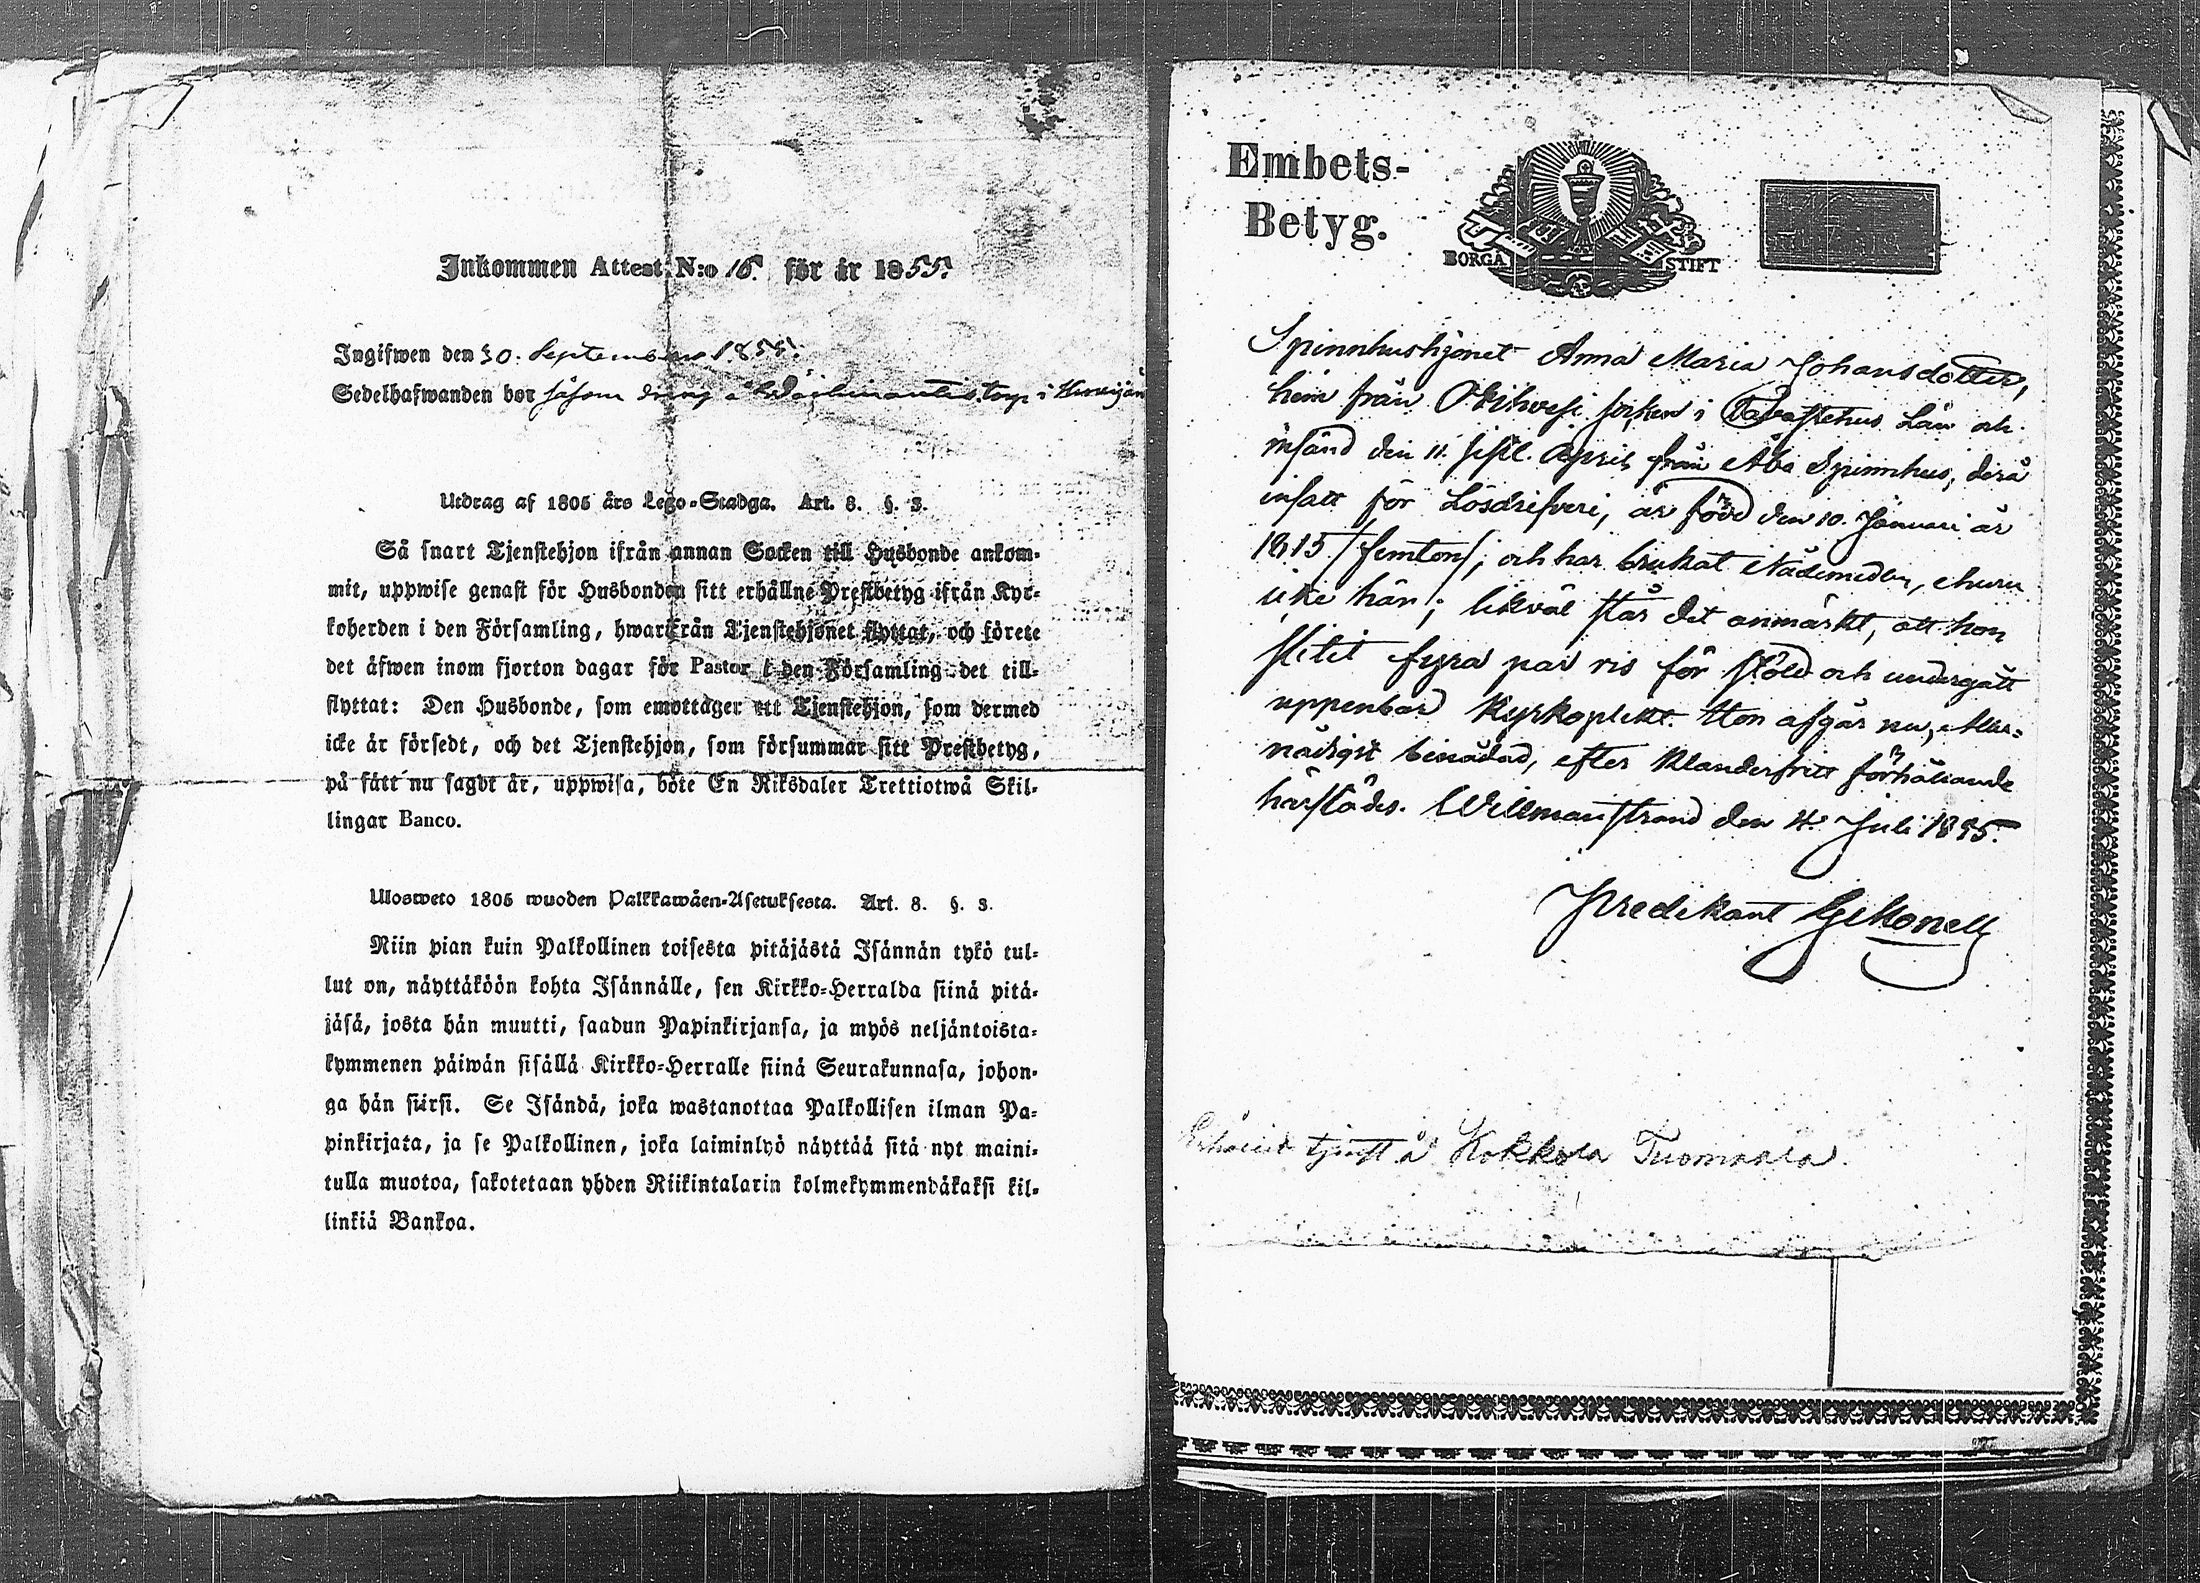 Inkommen Attest N:o 16. för år 1855.
Ingifwen den 30. September 1855.
Sedelhafwanden bor såsom dräng å torp i
Utdrag af 1805 års Lego-Stadga. Art. 8. §. 3.
Så snart Tjenstehjon ifrån annan Socken till Husbonde ankom-
mit, uppwise genast för Husbonden sitt erhållne Prestbetyg ifrån Kyr-
koherden i den Församling, hwarifrån Tjenstehjonet flyttat, och förete
det äfwen inom fjorton dagar för Pastor i den Församling det till-
flyttat: Den Husbonde, som emottager ett Tjenstehjon, som dermed
icke är försedt, och det Tjenstehjon, som försummar sitt Prestbetyg,
på sätt nu sagdt är, uppwisa, böte En Riksdaler Trettiotwå Skil-
lingar Banco.
Ulosweto 1805 wuoden Palkkawäen-Asetuksesta. Art. 8. §. 3.
Niin pian kuin Palkollinen toisesta pitäjästä Isännän tykö tul-
lut on, näyttäköön kohta Isännälle, sen Kirkko-Herralda siinä pitä-
jäsä, josta hän muutti, saadun Papinkirjansa, ja myös neljäntoista-
kymmenen päiwän sisällä Kirkko-Herralle siinä Seurakunnasa, johon-
ga hän siirsi. Se Isändä, joka wastanottaa Palkollisen ilman Pa-
pinkirjata, ja se Palkollinen, joka laiminlyö näyttää sitä nyt maini-
tulla muotoa, sakotetaan yhden Riikintalarin kolmekymmendäkaksi kil-
linkiä Bankoa.
Embets-
Betyg.
BORGÅ STIFT
Spinnhushjonet Anna Maria Johansdotter,
hem från Sockn i Tavastehus Län och
insänd den 11. sistl. April från Åbo Spinnhus, derå
insatt för Lösdrifveri, är född den 10. Januari år
1815 /femton/; och har brukat Nådemedlen, ehuru
icke här; likväl står det anmärkt, att hon
slitit fyra par ris för stöld och undergått
uppenbar Kyrkoplikt. Hon afgår nu, Aller-
nådigst benådad, efter klanderfritt förhållande
härstädes. Willmanstrand den 4. Juli 1855.
Predikant
tjenst å Kokkola Tuomaala.